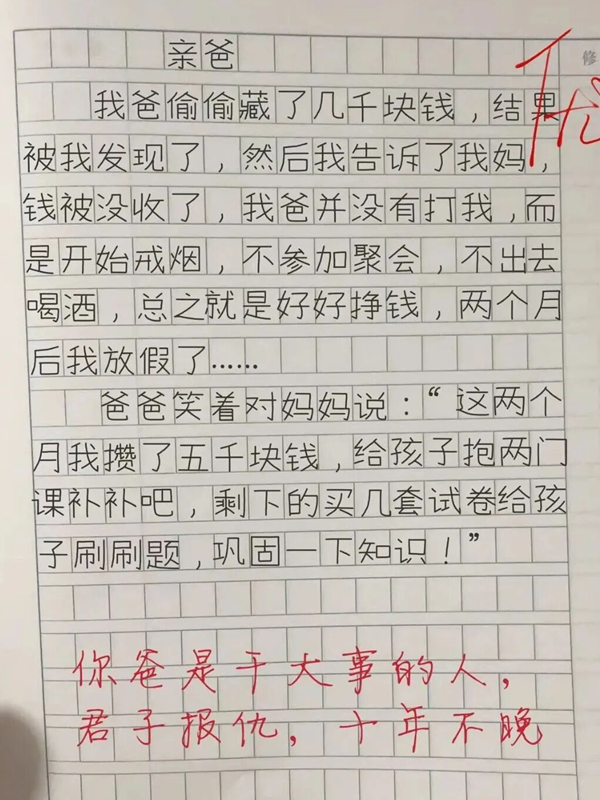 修
亲爸
我爸偷偷藏了几千块钱，结果
被我发现了，然后我告诉了我妈，
钱被没收了，我爸并没有打我，而
是开始戒烟，不参加聚会，不出去
喝酒，总之就是好好挣钱，两个月
后我放假了……
爸爸笑着对妈妈说：“这两个
月我攒了五千块钱，给孩子抱两门
课补补吧，剩下的买几套试卷给孩
子刷刷题，巩固一下知识！”
你爸是干大事的人，
君子报仇，十年不晚